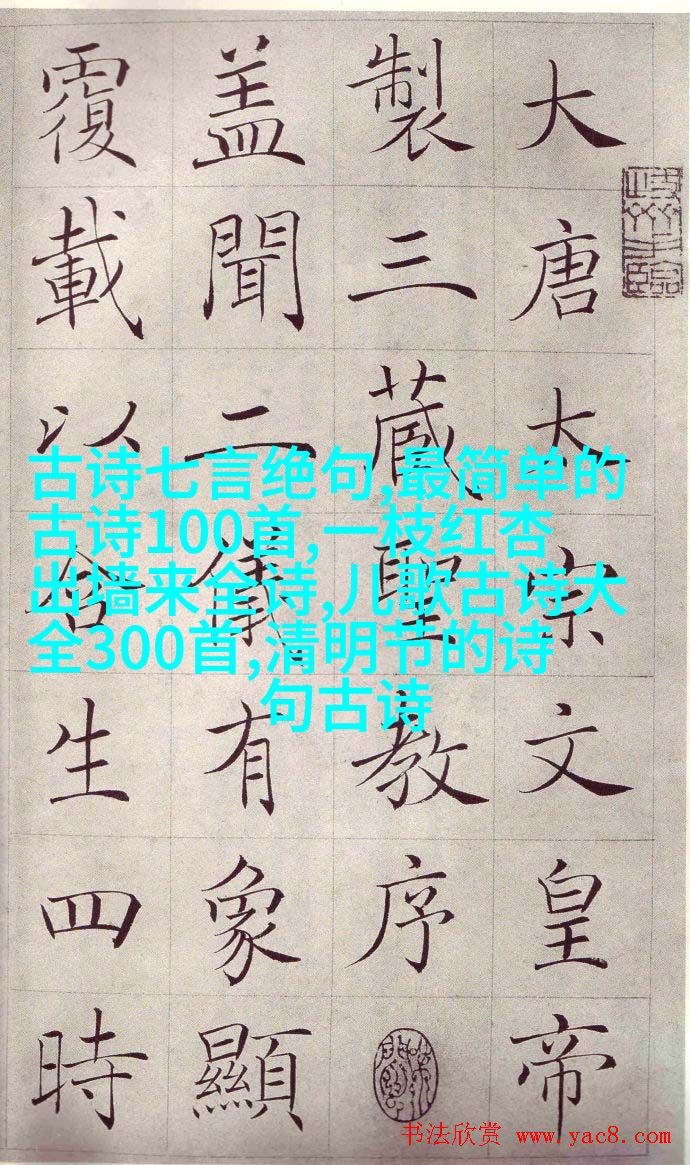 大唐太宗文皇帝
製三藏聖教序
盖聞二儀有象顯
覆載以含生四時
古诗七言绝句,最简单的
古诗100首,一枝红杏
出墙来全诗,儿歌古诗大
全300首,清明节的诗
句古诗
书法欣赏 www.yac8.com